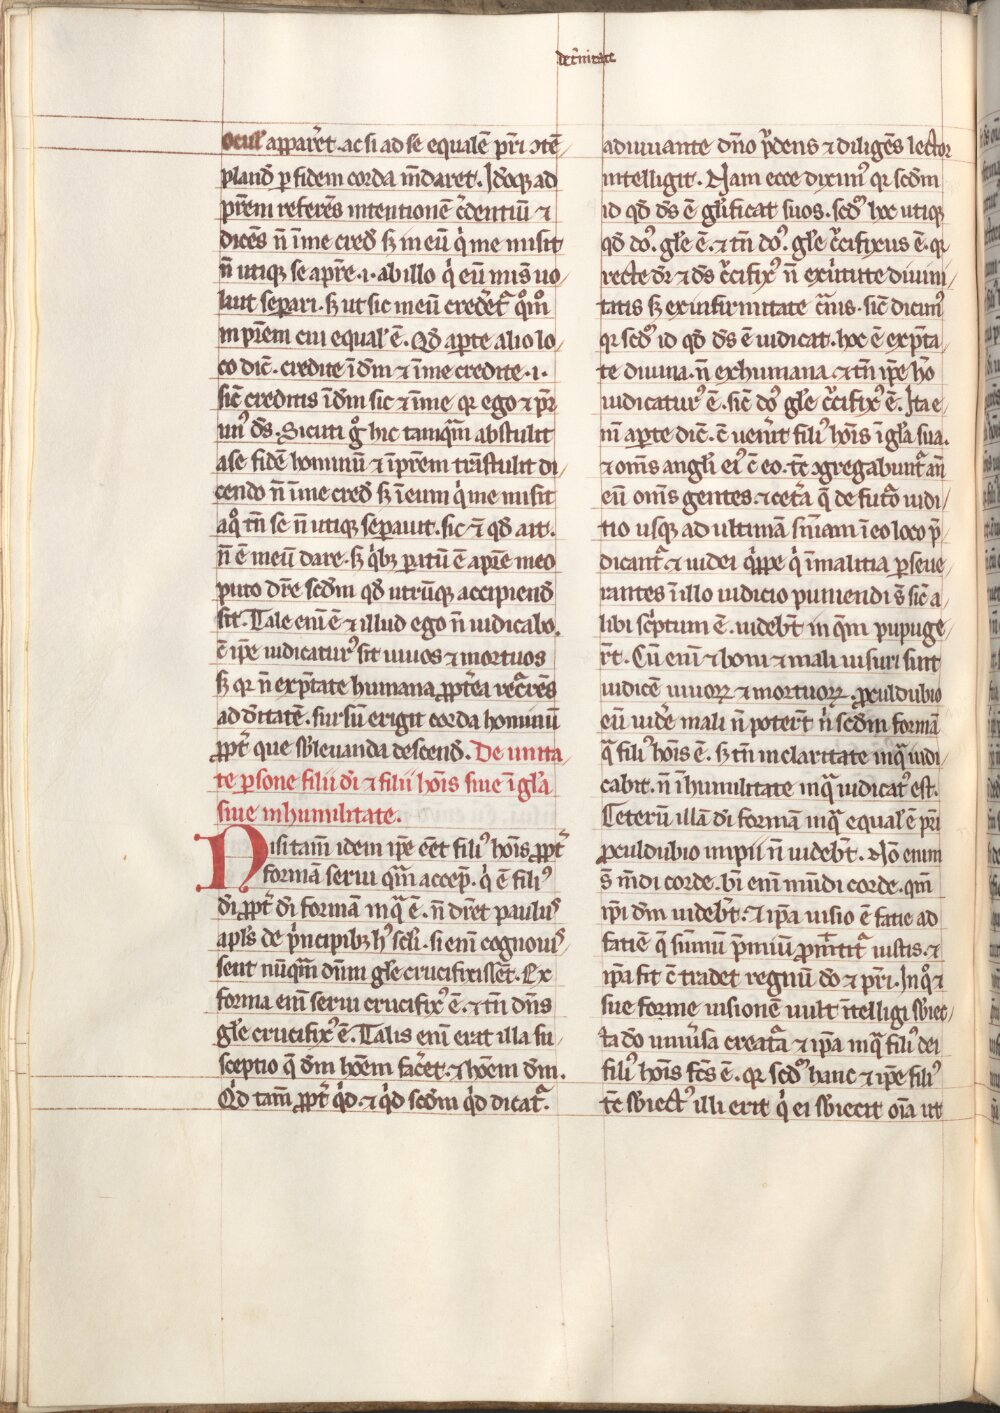 de t̾nitate
oculꝰ appar̾et. ac si ad se equalē pr̄i ↄtē
pland̄ ꝑ fidem corda m̄daret. Idoq; ad
pr̄em referēs intentionē c̾dentiū ⁊
dicēs n̄ ī me cred̄ sꝫ in eū q̇ me misit
n̄ utiq; se a pr̄e .i. ab illo q̇ eū mis̄ uo
luit sep̲ari. sꝫ ut sic in eū cred̾et̾ qͦmͦ
in pr̄em cui equal' ē. Qd̄ aꝑte alio lo
co dic̄. credite ī dm̄ ⁊ ī me credite .i.
sic̄ creditis ī dm̄ sic ⁊ ī me qꝛ ego ⁊ pr̄
unꝰ ds̄. Sicuti gͦ hic tamqͣm abstulit
a se fidē hominū ⁊ ī pr̄em trāstulit di
cendo n̄ ī me cred̄ sꝫ ī eum q̇ me misit
a qͦ tn̄ se n̄ utiq; seꝑauit. sic ⁊ qd̄ ait.
n̄ ē meū dare. sꝫ q̇bꝫ ꝑatū ē a pr̄e meo
puto dr̄e scdm̄ qd̄ utrūq; accipiend̄
sit. Tale eni ē ⁊ illud ego n̄ iudicabo.
c̄ ip̄e iudicaturꝰ sit uiuos ⁊ mortuos
sꝫ qꝛ n̄ ex p̄tate humana ꝓpt̾ea rec̾rēs
ad d̾itatē. sursū erigit corda hominū
ꝓpt̾ que sb̾leuanda descend̄. De unita
te ꝑsone filii di̾ ⁊ filii hoīs siue ī gl'a
siue in humilitate.
Nisi tam̄ idem ip̄e eēt filiꝰ hoīs ꝓpt̾
formā serui qͣm accep̄. q̇ ē filiꝰ
di̾ ꝓpt̾ di̾ formā in qͣ ē. n̄ dic̾et paulus
apl's de p̾ncipibꝫ hꝰ scl'i. si eni cognouis
sent nūqͣm dn̄m gl'e crucifixissēt. Ex
forma eni serui crucifixꝰ ē. ⁊ tn̄ dn̄s
gl'e crucifixꝰ ē. Talis eni erat illa su
sceptio q̄ dm̄ hoēm fac̾et. ⁊ hoēm dm̄.
Qd̾ tam̄ ꝓpt̾ q̇d. ⁊ q̇d scdm̄ q̇d dicat̾.
adiuuante dn̄o p̾dens ⁊ diligēs lector
intelligit. Nam ecce diximꝰ qꝛ scdm̄
id qd̄ ds̄ ē gl'ificat suos. scdͦ hoc utiq;
qd̄ doꝰ. gl'e ē. ⁊ tn̄ doꝰ. gl'e c̾cifixus ē. qꝛ
recte dr̄ ⁊ ds̄ c̾cifixꝰ n̄ ex uirtute diuini
tatis sꝫ ex infirmitate c̾nis. sic̄ dicimꝰ
qꝛ scdͦ id qd̄ ds̄ ē iudicat. hoc ē ex p̄ta
te diuina. n̄ ex humana ⁊ tn̄ ip̄e hō
iudicaturꝰ ē. sic̄ doꝰ gl'e c̾cifixꝰ ē. Ita e
ni aꝑte dic̄. c̄ uen̾it filiꝰ hoīs ī gl'a sua.
⁊ om̄s angl'i eiꝰ c̄ eo. tc̄ ↄgregabunt̾ an̄
eū om̄s gentes. ⁊ cet̾a q̄ de fut̾o iudi
tio usq; ad ultimā sn̄iam ī eo loco p̄
dicant̾. ⁊ iudei q̇ppe q̇ ī malitia ꝑseue
rantes ī illo iudicio puniendi s̄ sic̄ a
libi sc̾ptum ē. uideb̄t in qͣm pupuge
r̄t. Cū eni ⁊ boni ⁊ mali uisuri sint
iudicē uiuoꝝ ⁊ mortuoꝝ. ꝓculdubio
eū uid̾e mali n̄ poter̄t n̄ scdm̄ formā
qͣ filiꝰ hoīs ē. sꝫ tn̄ in claritate in qͣ iudi
cabit. n̄ ī humilitate in qͣ iudicatꝰ est.
Ceterū illā di̾ formā in qͣ equal' ē pr̄i
ꝓculdubio impii n̄ uideb̄t. Nō enim
s̄ m̄di corde. bī eni mūdi corde. qm̄
ip̄i dm̄ uideb̄t. ⁊ ip̄a uisio ē facie ad
faciē q̄ summū p̄miū ꝓmittit̾ iustis. ⁊
ip̄a fit c̄ tradet regnū do̾ ⁊ pr̄i. In qͦ ⁊
sue forme uisionē uult ītelligi sb̾iec
ta do̾ uniu̾sa creat̾a ⁊ ip̄a in qͣ filiꝰ dei
filiꝰ hoīs fcs̄ ē. qꝛ scdͦ hanc ⁊ ip̄e filiꝰ
tc̄ sb̾iectꝰ illi erit q̇ ei sb̾iecit oīa ut